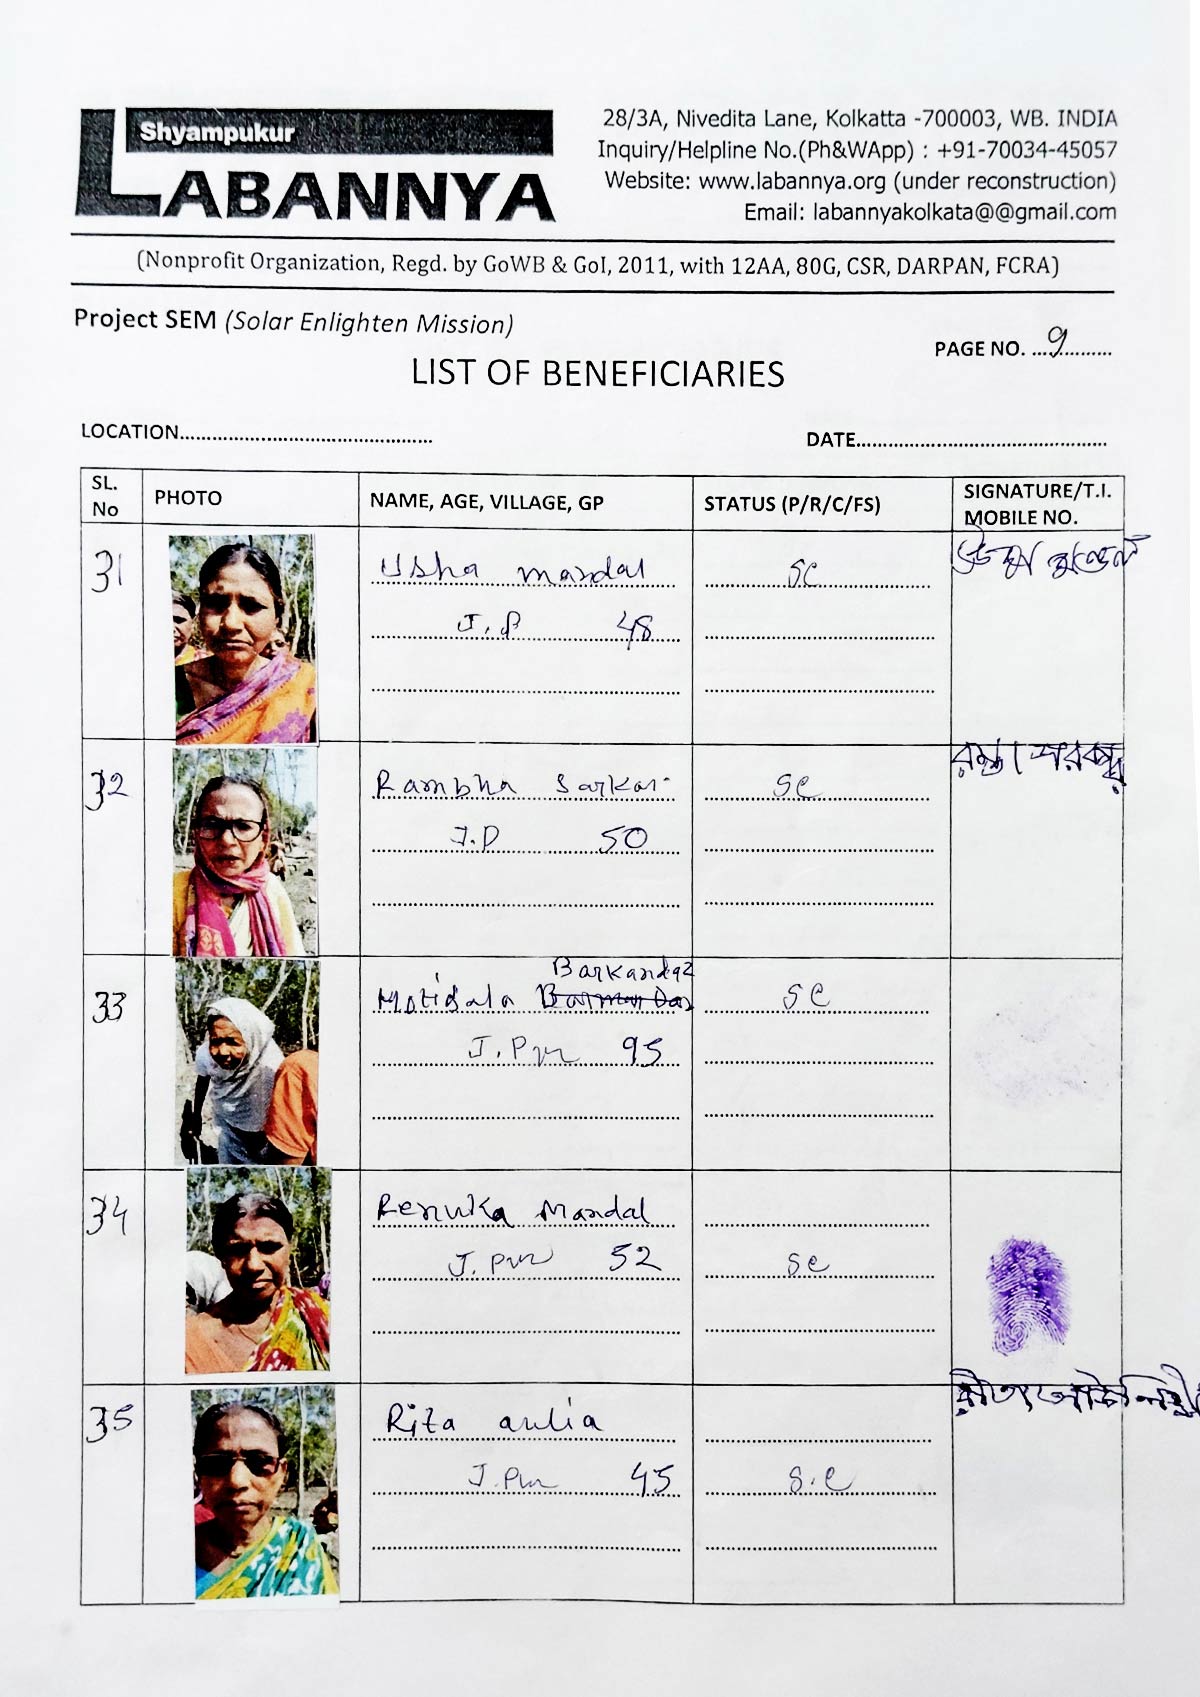 Shyampukur
LABANNYA
28/3A, Nivedita Lane, Kolkatta -700003, WB. INDIA
Inquiry/Helpline No.(Ph&WApp) : +91-70034-45057
Website: www.labannya.org (under reconstruction)
Email: labannyakolkata@@gmail.com
(Nonprofit Organization, Regd. by GoWB & GoI, 2011, with 12AA, 80G, CSR, DARPAN, FCRA)
Project SEM (Solar Enlighten Mission)
PAGE NO. ...9..........
LIST OF BENEFICIARIES
LOCATION..............................................
DATE..............................................
SL. No
PHOTO
NAME, AGE, VILLAGE, GP
STATUS (P/R/C/FS)
SIGNATURE/T.I. MOBILE NO.
31
Usha Mandal
SC
J.P 48
32
Rambha Sarkar
SC
রম্ভা সরকার
J.P 50
33
Barkandaz
Motibala
SC
J.Pur 95
34
Renuka Mandal
J.Pur 52
SC
35
Rita aulia
J.Pur 45
S.C